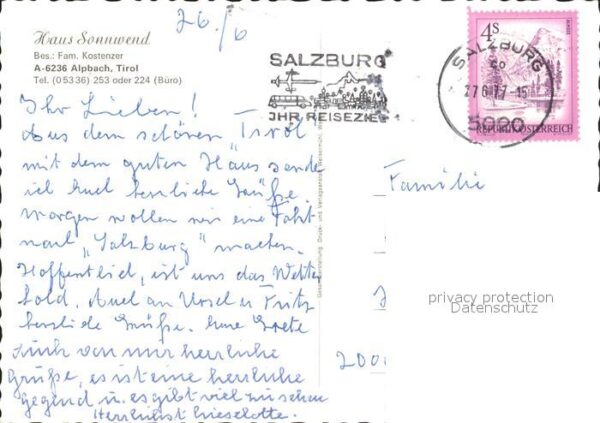 26./6
Haus Sonnwend
Bes.: Fam. Kostenzer
A-6236 Alpbach, Tirol
Tel. (0 53 36) 253 oder 224 (Büro)
Ihr Lieben!
Aus dem schönen Tirol
mit dem guten Haus sende
ich Euch herzliche Grüße.
morgen wollen wir eine Fahrt
nach „Salzburg" machen.
Hoffentlich, ist uns das Wetter
hold. Auch an Ursel u Fritz
herzliche Grüße. Eure Grete
Auch von mir herrliche
Grüße, es ist eine herrliche
gegend u. es gibt viel zu sehen
Herzlichst Lieselotte.
SALZBURG
IHR REISEZIE
4S
SALZBURG
27 6 77-15
5020
REPUBLIK ÖSTERREICH
Familie
privacy protection
Datenschutz
2000